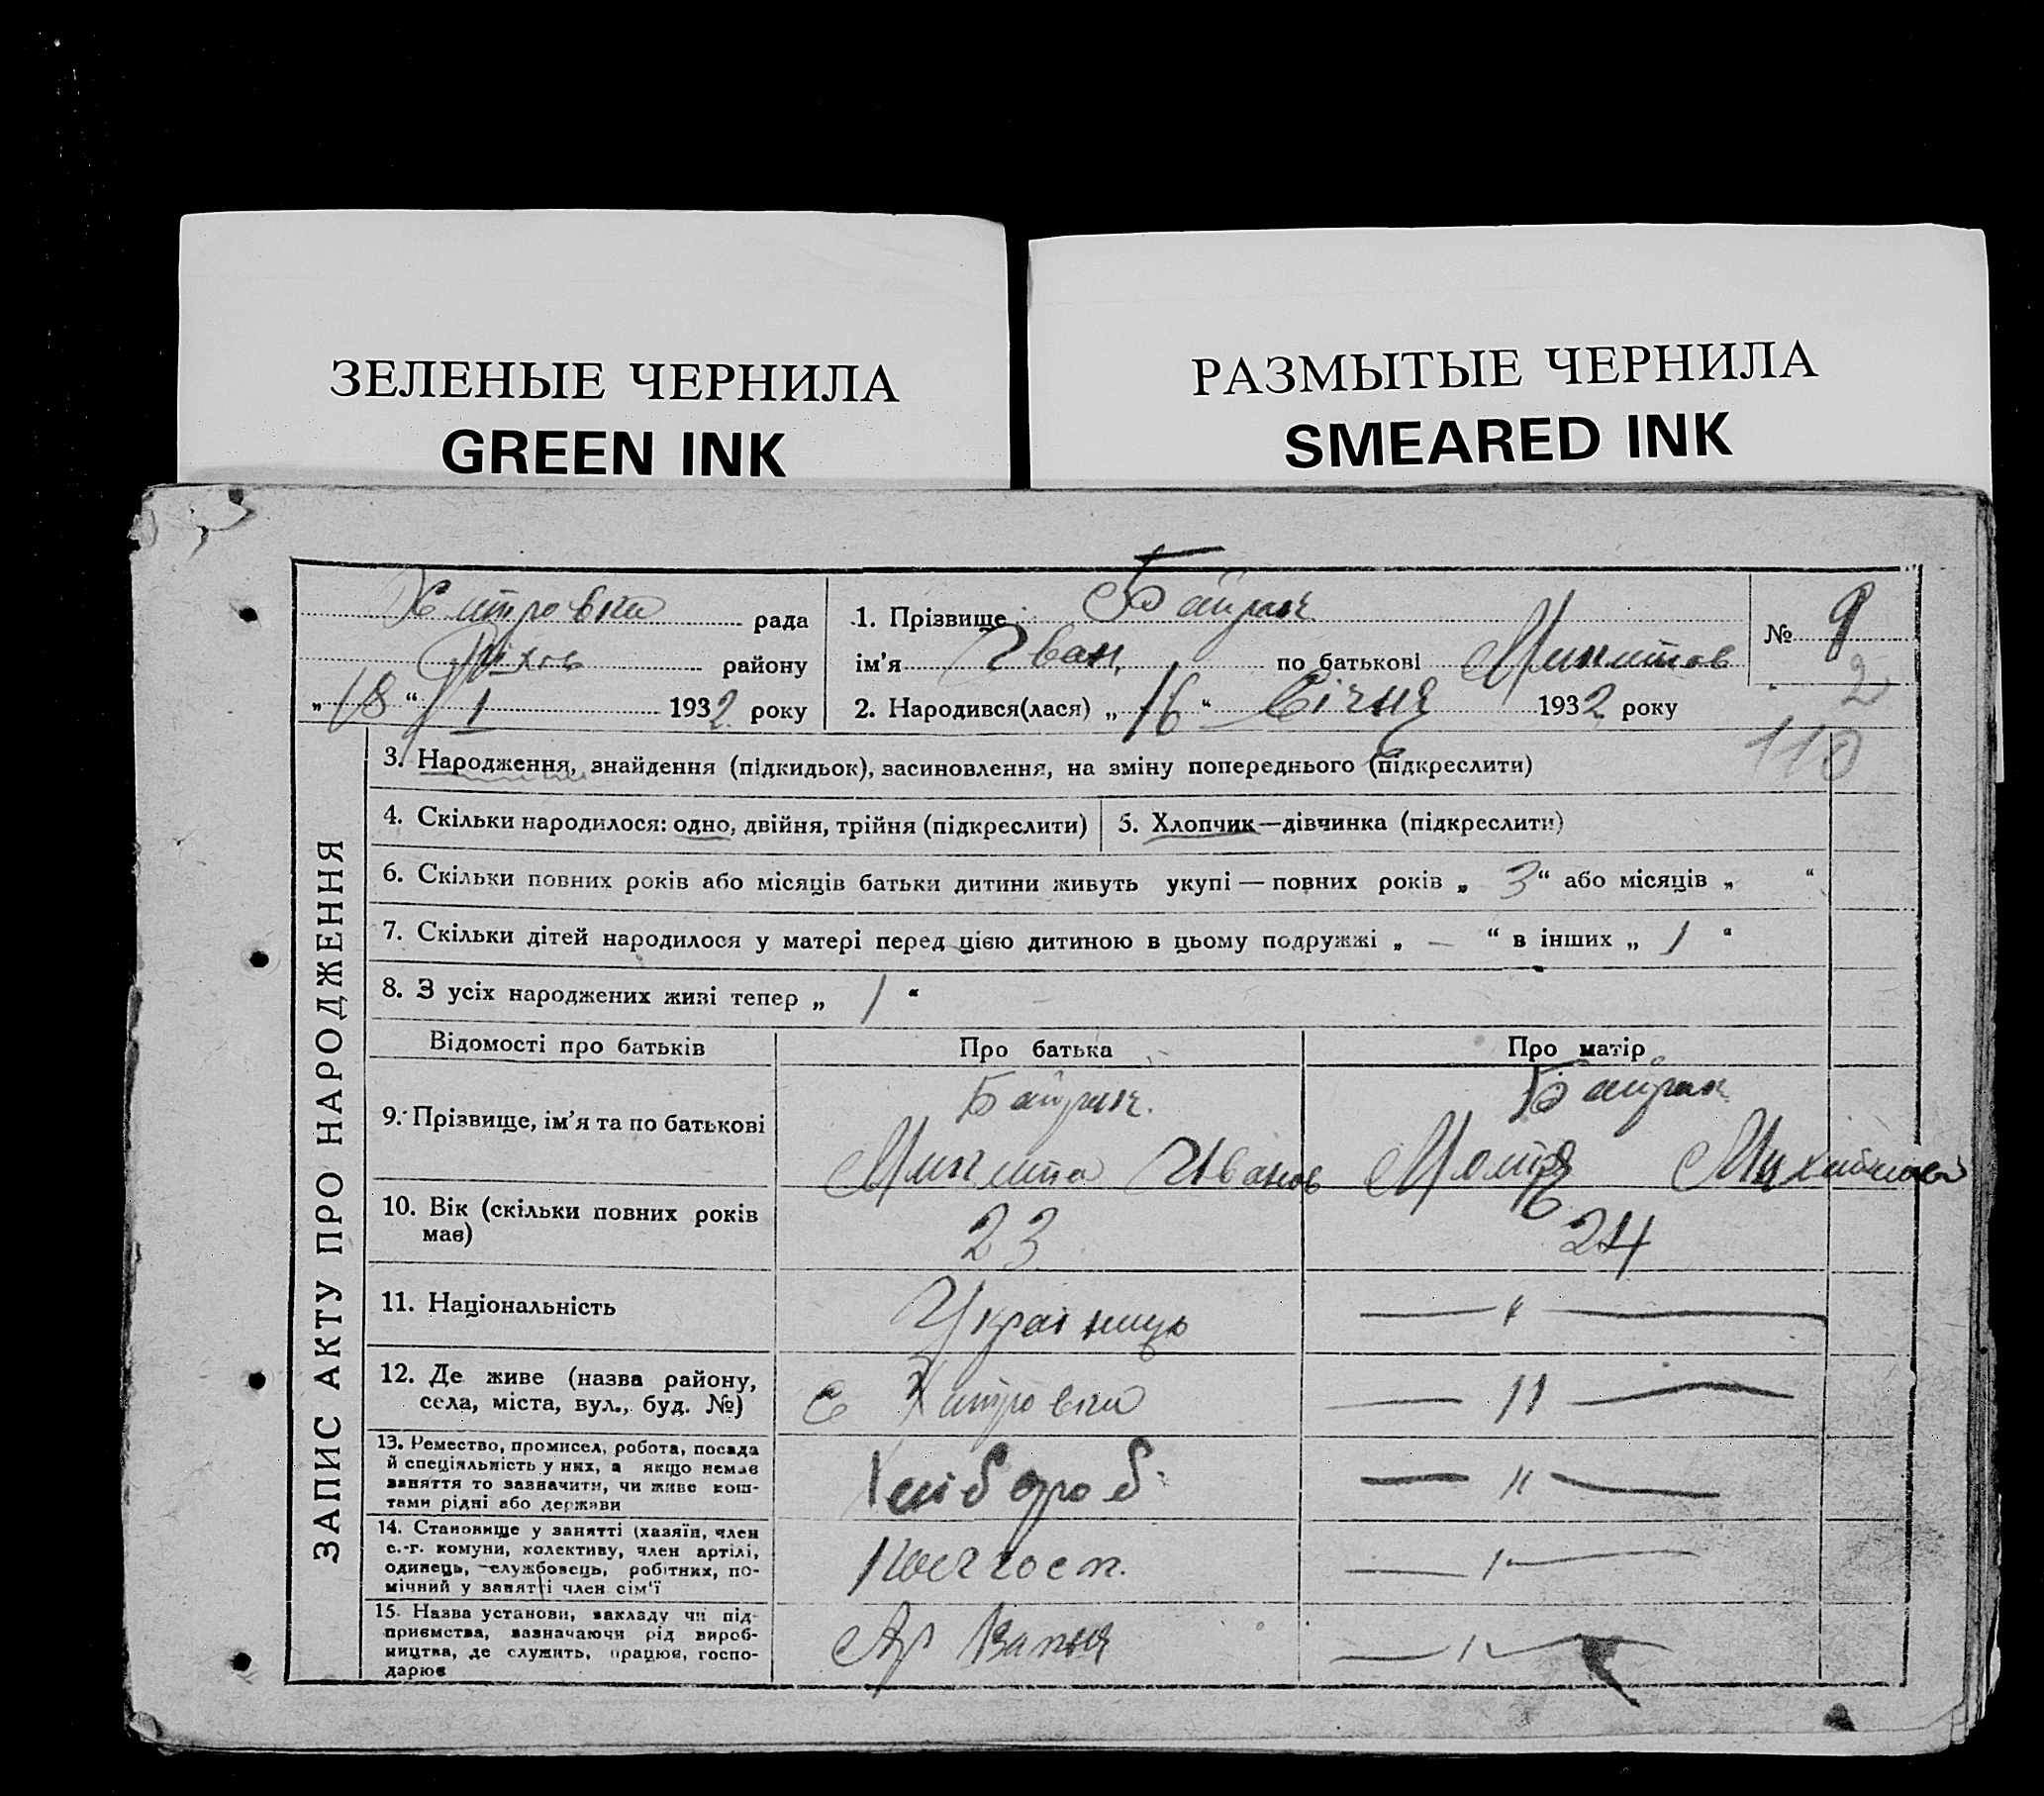 ЗЕЛЕНЫЕ ЧЕРНИЛА
GREEN INK
РАЗМЫТЫЕ ЧЕРНИЛА
SMEARED INK
рада
району
„18“ I 1932 року
1. Прізвище
ім'я Іван по батькові Микитов
2. Народився(лася) „16“ Січня 1932 року
№ 9
2
110
ЗАПИС АКТУ ПРО НАРОДЖЕННЯ
3. Народження, знайдення (підкидьок), засиновлення, на зміну попереднього (підкреслити)
4. Скільки народилося: одно, двійня, трійня (підкреслити)
5. Хлопчик—дівчинка (підкреслити)
6. Скільки повних років або місяців батьки дитини живуть укупі — повних років „ 3 “ або місяців „ “
7. Скільки дітей народилося у матері перед цією дитиною в цьому подружжі „ — “ в інших „ 1 “
8. З усіх народжених живі тепер „ 1 “
Відомості про батьків
Про батька
Про матір
9. Прізвище, ім'я та по батькові
Микита Іванов
Мотря
10. Вік (скільки повних років
має)
23
24
11. Національність
Українець
— " —
12. Де живе (назва району,
села, міста, вул., буд. №)
с
— " —
13. Ремество, промисел, робота, посада
й спеціяльність у них, а якщо немає
заняття то зазначити, чи живе кош-
тами рідні або держави
Хлібороб
— " —
14. Становище у занятті (хазяїн, член
с.-г. комуни, колективу, член артілі,
одинець, службовець, робітник, по-
мічний у занятті член сім'ї
15. Назва установи, закладу чи під-
приємства, зазначаючи рід вироб-
ництва, де служить, працює, госпо-
дарює